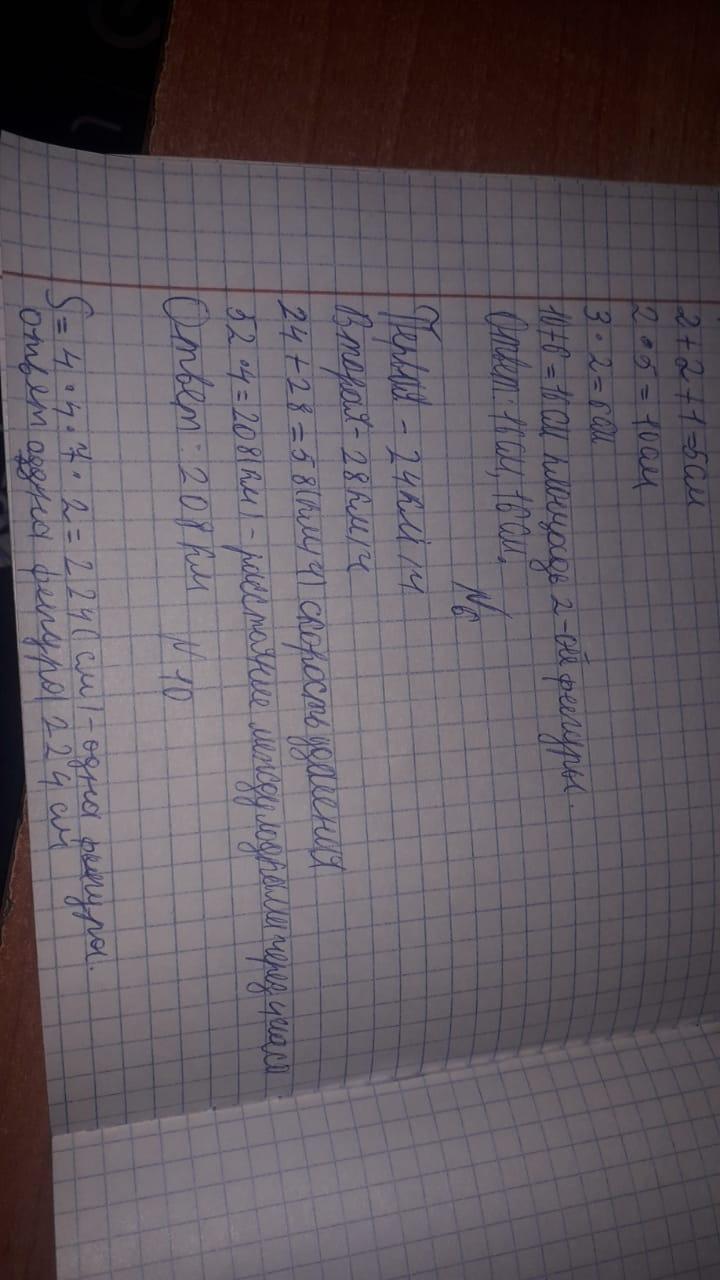 2+2+1=5см
2•5=10см
3•2=6см
10+6=16см площадь 2-ой фигуры.
Ответ: 16см, 16см.
N6
Первый - 24км/ч
Второй - 28км/ч
24+28=58(км/ч) скорость удаления
52•4=208(км) - расстояние между лодками через 4 часа
Ответ: 208км
N 10
S=4•4•7•2=224(см)-одна фигуры.
ответ одна фигура 224 см